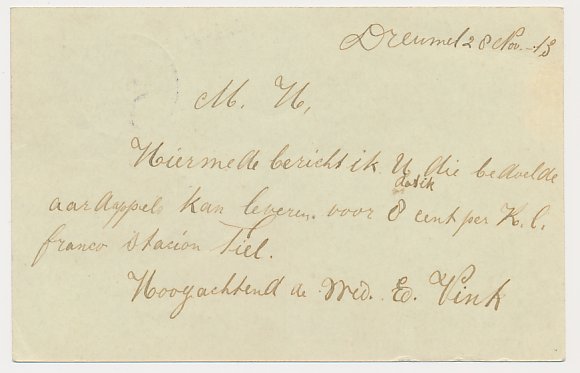 Dreumel 28 Nov. -13
M. H,
Hiermede bericht ik U die bedoelde
dat ik
aardappels kan leveren voor 8 cent per K.G.
franco Stacion Tiel.
Hoogachtend de Wed. E. Vink